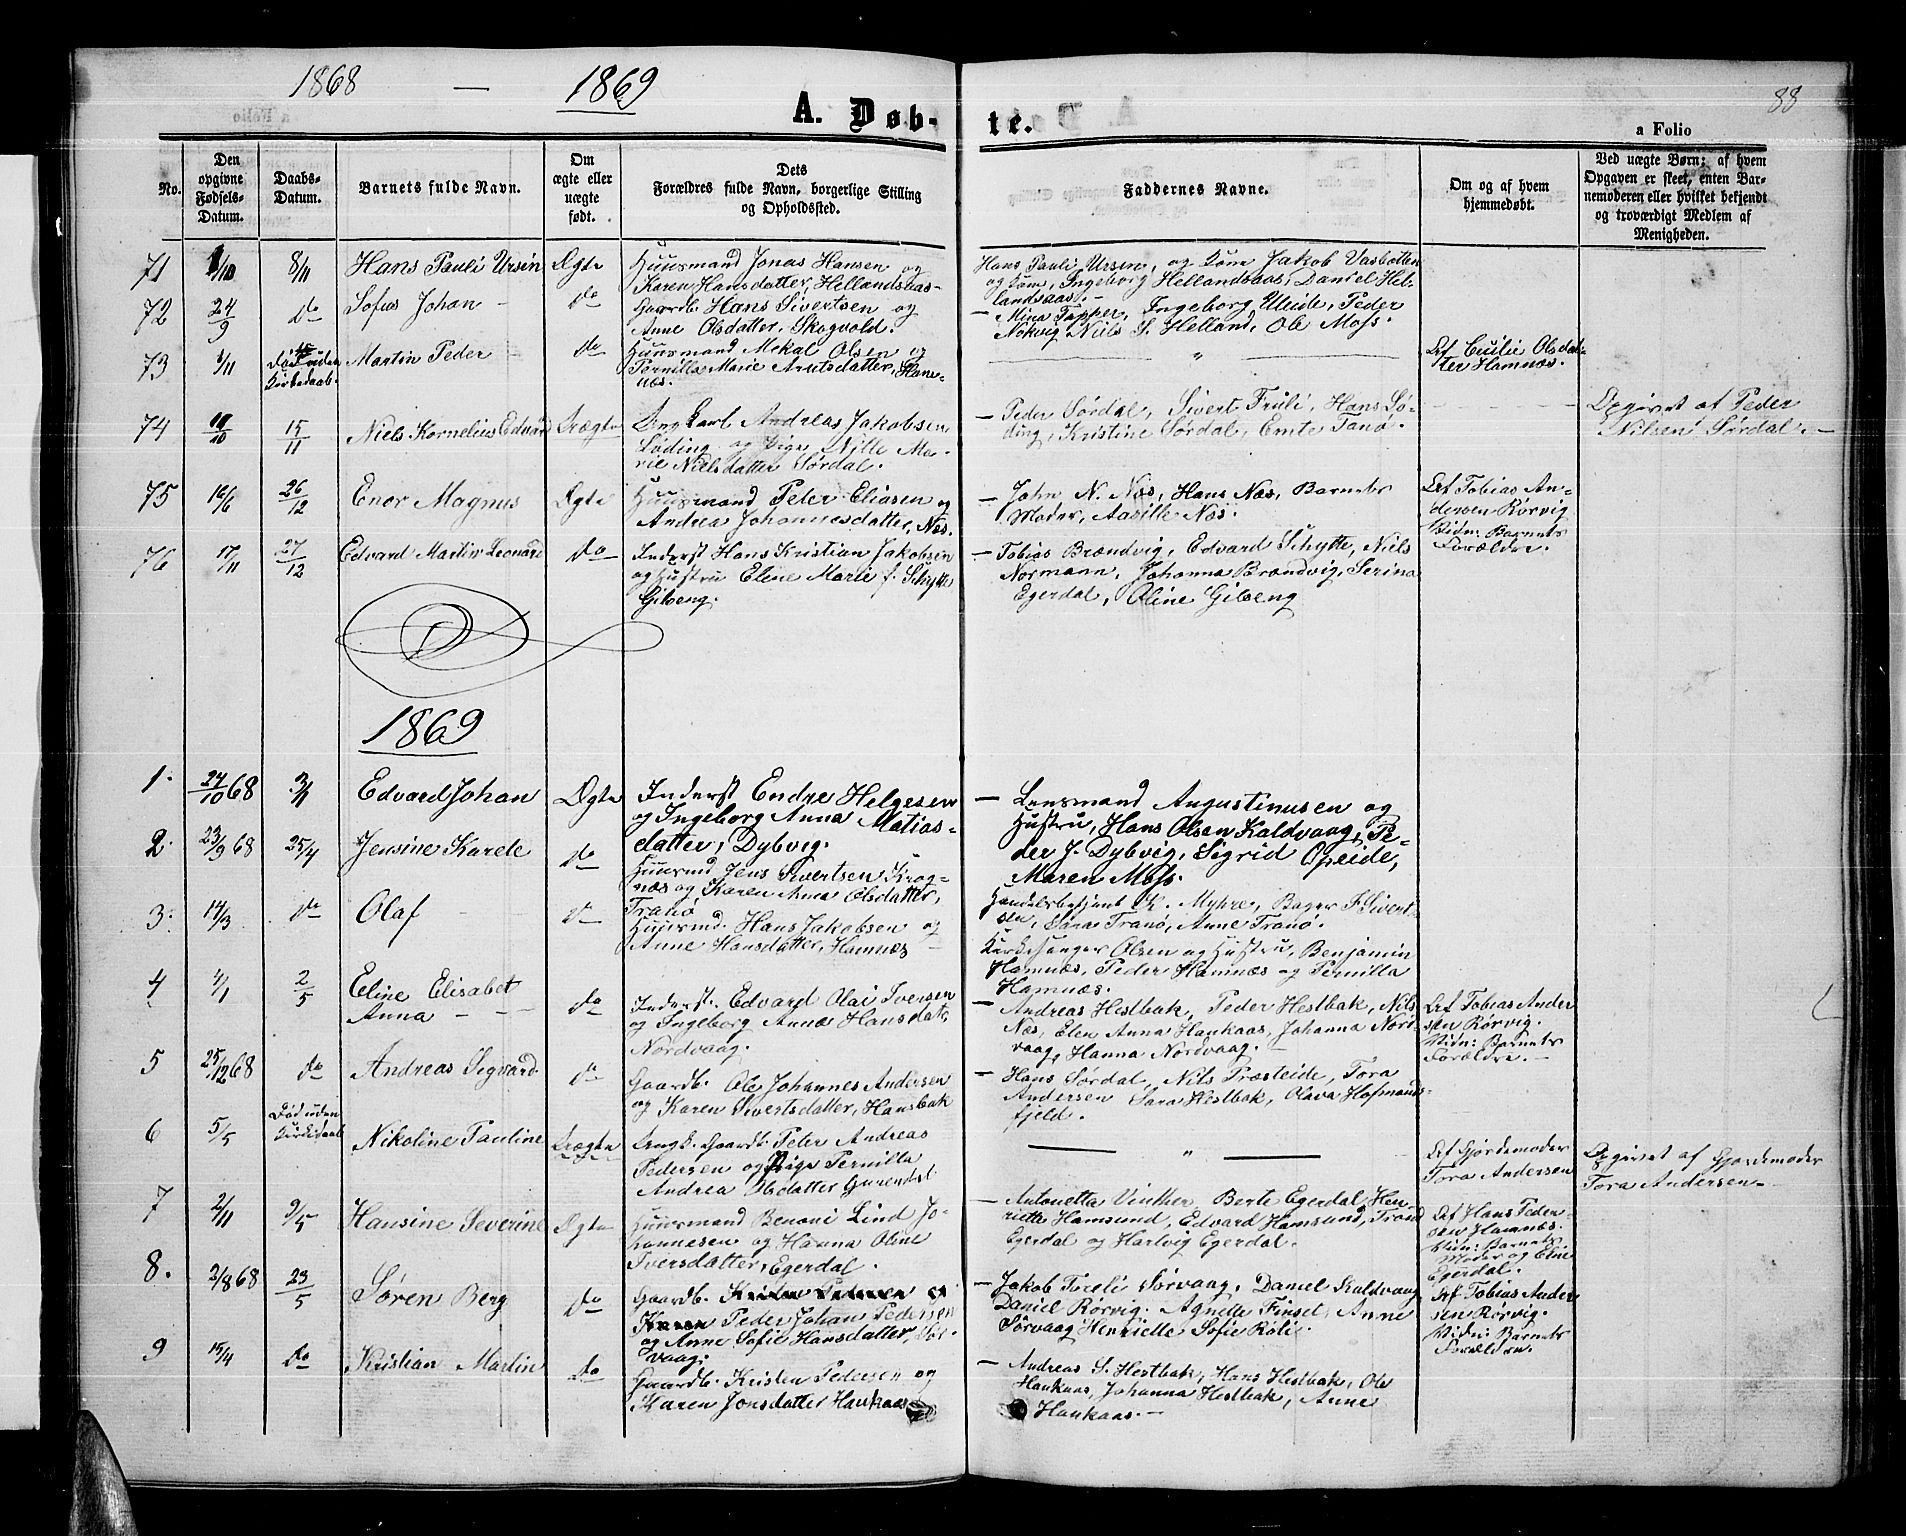 1868 — 1869
A. Døb-
te.
88
a Folio
No.
Den
opgivne
Fødsels-
Datum.
Daabs-
Datum.
Barnets fulde Navn.
Om
ægte eller
uægte
født.
Dets
Forældres fulde Navn, borgerlige Stilling
og Opholdssted.
Faddernes Navne.
Om og af hvem
hjemmedøbt.
Ved uægte Børn; af hvem
Opgaven er skeet, enten Bar-
nemoderen eller hvilket bekjendt
og troværdigt Medlem af
Menigheden.
71 1/10 8/11 Hans Pauli Ursin Ægte
Huusmand Jonas Hansen og
Karen Hansdatter, Hellandsaas-
Hans Pauli Ursen, og Kone Jakob Vasbotten
og Kone, Ingeborg Hellandsaas, Daniel Hel-
landsaas.-
72 24/9 do Sofus Johan - do
Gaardb. Hans Sivertsen og
Anne Olsdatter, Skogvold.
— Mina Tapper, Ingeborg Uleide, Peder
Nøkvig Niels S. Helland, Ole Moss.
73 1/11 Død uden
Kirkedaab. Martin Peder - do
Huusmand Mekal Olsen og
Pernilla Marie Arntsdatter, Ham-
næs.
— " —
Af Cecilie Olsdat-
ter Hamnæs.
74 19/10 15/11 Niels Kornelius Edvard Uægte
Ungkarl Andreas Jakobsen
Løding og Pige Nille Ma-
rie Nielsdatter Sørdal.
— Peder Sørdal, Sivert Fruli, Hans Lø-
ding, Kristine Sørdal, Emte Tanø.
Opgivet af Peder
Nilsen Sørdal. —
75 16/6 26/12 Enor Magnus Ægte
Huusmand Peter Eliasen og
Andrea Johannesdatter, Næs.
— John N. Næs, Hans Næs, Barnets
Moder, Aasille Næs.
Af Tobias An-
dersen Rørvig
Vidn: Barnets
Forældre.
76 17/11 27/12 Edvard Martin Leonard do
Inderst Hans Kristian Jakobsen
og Hustru Eline Marie f. Schytte
Gilseng.
— Tobias Brændvig, Edvard Schytte, Niels
Normann, Johanna Brændvig, Serina
Egerdal, Oline Gilseng
1869
1. 24/10 68 3/1 Edvard Johan Ægte
Inderst Endre Helgesen
og Ingeborg Anna Matias-
datter, Dybvig.
— Lensmand Augustinusen og
Hustru, Hans Olsen Kaldvaag, Pe-
der J. Dybvig, Sigrid Opeide,
Maren Moss.
2. 23/9 68 25/4 Jensine Karele do
Huusmd Jens Sivertsen Krog-
næs og Karen Anna Olsdatter,
Tranø
Handelsbetjent K. Myhre, Bager F. Sivert-
sen, Sara Tranø, Anne Tranø.
3. 14/3 do Olaf do
Huusmd. Hans Jakobsen og
Anne Hansdatter, Hamnæs —
Kirkesanger Olsen og Hustru, Benjamin
Hamnæs, Peder Hamnæs og Pernilla
Hamnæs.
4 1/1 2/5 Eline Elisabet
Anna — — do
Inderst. Edvard Olai Iversen
og Ingeborg Anna Hansdat,
Nordvaag.
— Andreas Hestbak, Peder Hestbak, Nils
Næs, Elen Anna Haukaas, Johanna Nord-
vaag, Hanna Nordvaag. —
Af Tobias Ander
sen Rørvig.
Vidn: Barnets
Forældre. —
5 25/12 68 do Andreas Segvard. do
Gaardb. Ole Johannes Andersen
og Karen Sivertsdatter, Hansbak
— Hans Sørdal, Nils Præsteide, Tora
Andersen Sara Hestbak, Olava Hofmands-
fjeld.
6 5/5 Død uden
Kirkedaab Nikoline Pauline Uægte
Ungk. Gaardb. Peter Andreas
Pedersen og Pige Pernilla
Andrea Olsdatter
— " —
Af Gjordemoder
Tora Andersen
Opgivet af Gjordemoder
Tora Andersen —
7 2/11 9/5 Hansine Severine Ægte
Huusmand Benoni Lind Jo-
hannesen og Hanna Oline
Iversdatter, Egerdal.
— Antonetta Vinther, Berte Egerdal, Hen-
riette Hamsund, Edvard Hamsund, Trond
Egerdal og Hartvig Egerdal.
Af Hans Peder-
sen Hamnæs.
Vidn: Barnets
Moder og Eline
Egerdal.
8. 2/8 68 23/5 Søren Berg do
Gaardb.
Peder Johan Pedersen
og Anne Sofie Hansdatter, Sør-
vaag;
— Jakob Toreli Sørvaag, Daniel Kaldvaag
Daniel Rørvig. Agnette Finset, Anne
Sørvaag Henriette Sofie Røli.
Af Tobias Ander
sen Rørvig.
Vidn: Barnets
Forældre.
9 15/4 do Kristian Martin do
Gaardb. Kristen Pedersen og
Karen Jonsdatter Haukaas
— Andreas S. Hestbak, Hans Hestbak, Ole
Haukaas, Johanna Hestbak, Anne
Haukaas. —